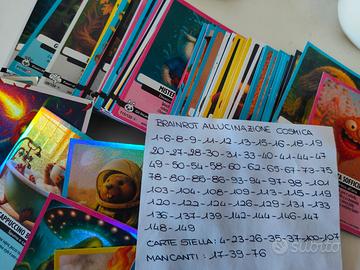 BRAINROT ALLUCINAZIONE COSMICA
1-6-8-9-11-12-13-15-16-18-19
20-27-28-30-31-33-40-41-44-47
49-50-54-58-60-62-65-67-73-75
78-80-85-86-93-94-97-98-101
103-104-108-109-113-115-115
120-122-124-126-129-131-133
136-137-139-142-144-146-147
148-149
CARTE STELLA: 4-23-26-35-37-100-107
MANCANTI: 17-39-76
CAPPUCCINO
Subito